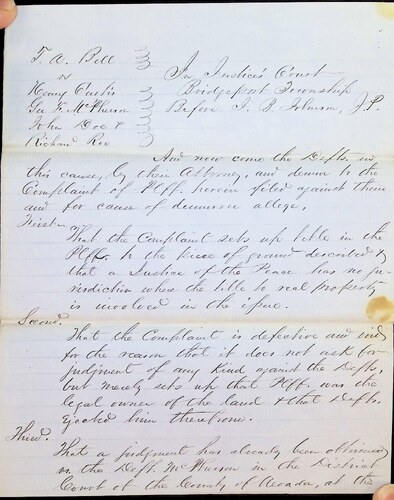 T. A. Bell
vs
Henry Curtis
Geo K. McPherson
John Doe &
Richard Roe
In Justice's Court
Bridgeport Township
Before J. B. Johnson, J.P.
And now come the Defts, in
this cause, by their Attorney, and demur to the
Complaint of Plff. herein filed against them
and for cause of demurrer allege.
First
That the Complaint sets up title in the
Plff. to the piece of ground described &
that a Justice of the Peace has no ju-
risdiction where the title to real property
is involved in the issue.
Second.
That the Complaint is defective and
for the reason that it does not ask for
judgment of any kind against the Defts,
but merely sets up that Plff. was the
legal owner of the land & that Defts.
ejected him therefrom.
Third.
That a judgment has already been obtained
the Deft. McPherson in the District
Court of the County of Nevada, at the